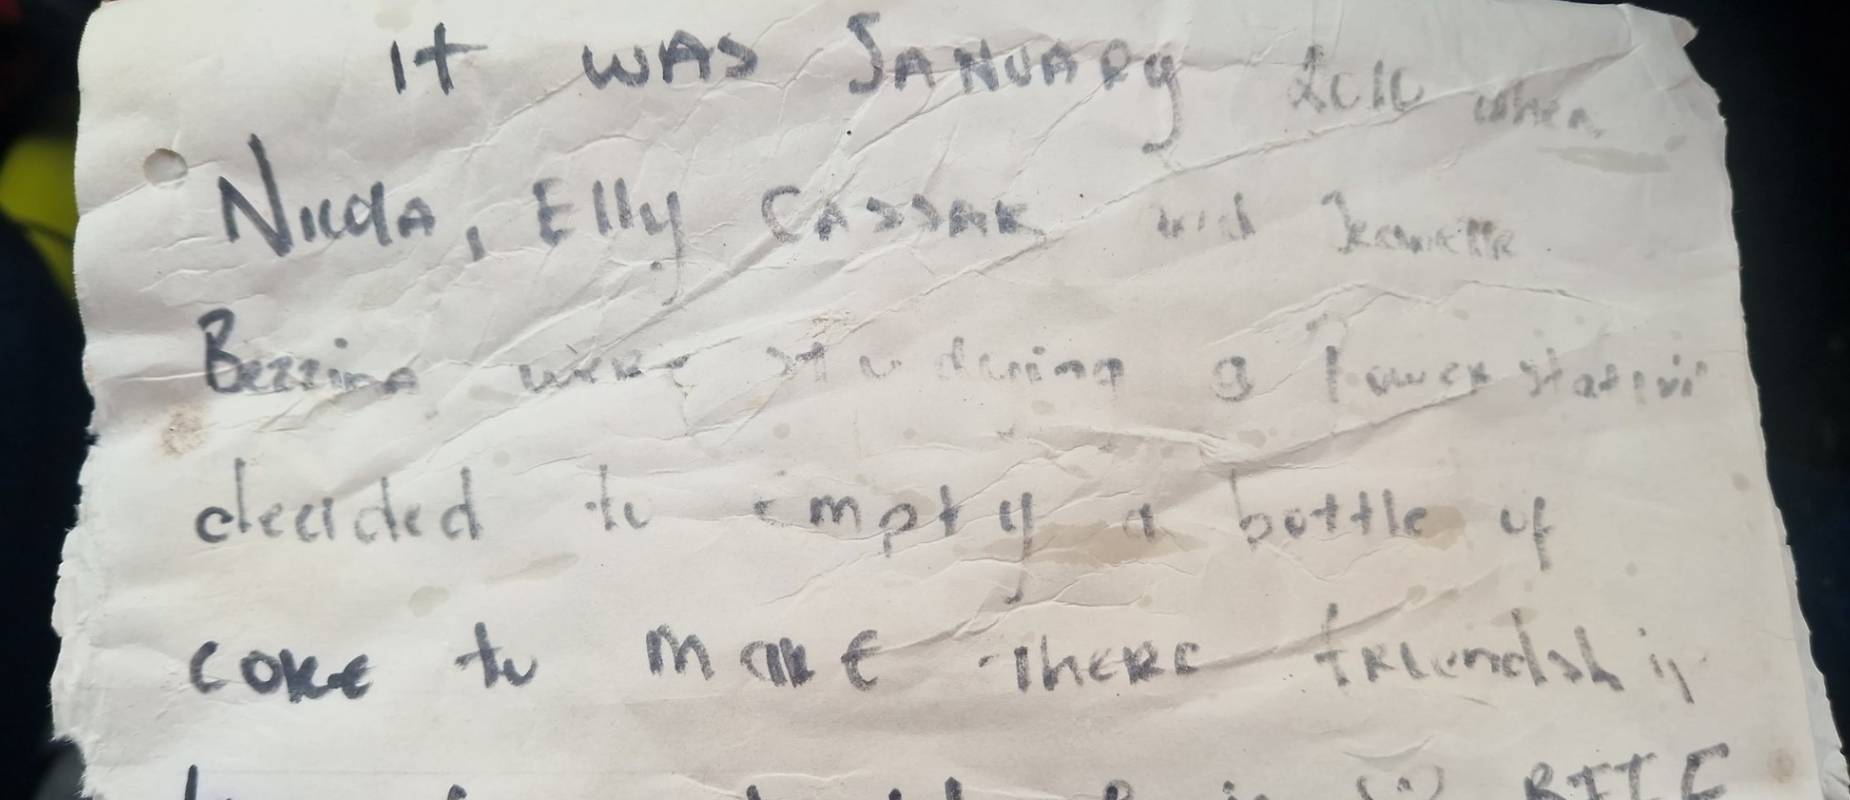 It was January 2010 when
Nicola, Elly Cassar and Jeanette
Bezzina were studying a Power station
decided to impty a bottle of
coke to make there friendship